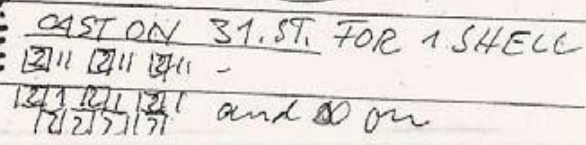 CAST ON 31.ST. FOR 1 SHELL
|2|11 |2|11 |2|11 -
|2|1 |2|1 |2|1 and so on